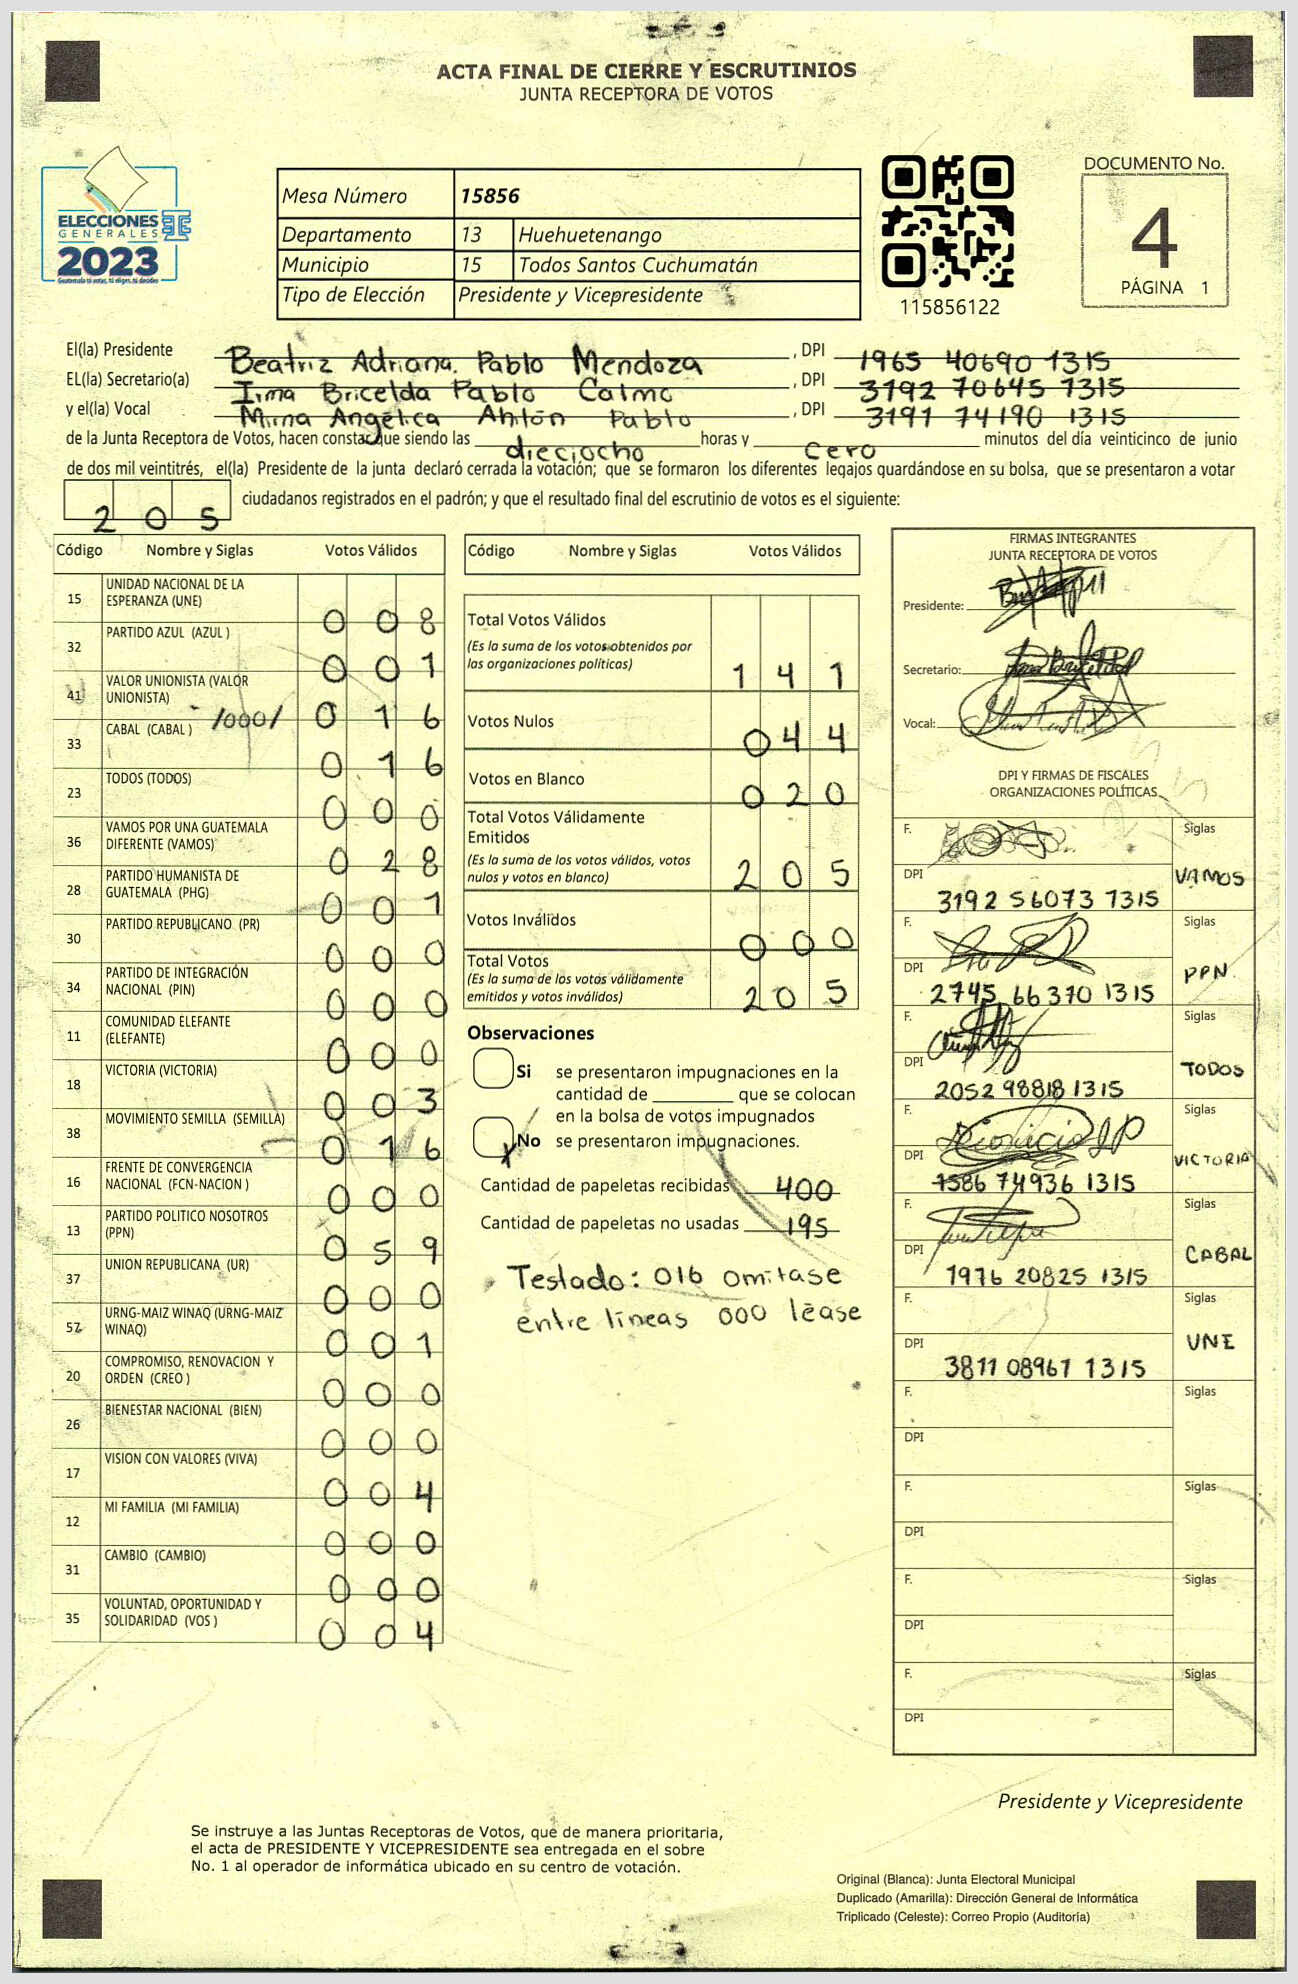 ACTA FINAL DE CIERRE Y ESCRUTINIOS
JUNTA RECEPTORA DE VOTOS
ELECCIONES
GENERALES
2023
Mesa Número 15856
Departamento 13 Huehuetenango
Municipio 15 Todos Santos Cuchumatán
Tipo de Elección Presidente y Vicepresidente
115856122
DOCUMENTO No.
4
PÁGINA 1
El(la) Presidente Beatriz Adriana. Pablo Mendoza, DPI 1965 40690 1315
EL(la) Secretario(a) Irma Bricelda Pablo Calmo, DPI 3192 70645 1315
y el(la) Vocal Mirna Angélica Ahilón Pablo, DPI 3191 74190 1315
de la Junta Receptora de Votos, hacen constar que siendo las dieciocho horas y cero minutos del día veinticinco de junio
de dos mil veintitrés, el(la) Presidente de la junta declaró cerrada la votación; que se formaron los diferentes legajos guardándose en su bolsa, que se presentaron a votar
205 ciudadanos registrados en el padrón; y que el resultado final del escrutinio de votos es el siguiente:
Código Nombre y Siglas Votos Válidos
15 UNIDAD NACIONAL DE LA ESPERANZA (UNE) 008
32 PARTIDO AZUL (AZUL ) 001
41 VALOR UNIONISTA (VALOR UNIONISTA) /000/ 016
33 CABAL (CABAL ) 016
23 TODOS (TODOS) 000
36 VAMOS POR UNA GUATEMALA DIFERENTE (VAMOS) 028
28 PARTIDO HUMANISTA DE GUATEMALA (PHG) 001
30 PARTIDO REPUBLICANO (PR) 000
34 PARTIDO DE INTEGRACIÓN NACIONAL (PIN) 000
11 COMUNIDAD ELEFANTE (ELEFANTE) 000
18 VICTORIA (VICTORIA) 003
38 MOVIMIENTO SEMILLA (SEMILLA) 016
16 FRENTE DE CONVERGENCIA NACIONAL (FCN-NACION ) 000
13 PARTIDO POLITICO NOSOTROS (PPN) 059
37 UNION REPUBLICANA (UR) 000
57 URNG-MAIZ WINAQ (URNG-MAIZ WINAQ) 001
20 COMPROMISO, RENOVACION Y ORDEN (CREO ) 000
26 BIENESTAR NACIONAL (BIEN) 000
17 VISION CON VALORES (VIVA) 004
12 MI FAMILIA (MI FAMILIA) 000
31 CAMBIO (CAMBIO) 000
35 VOLUNTAD, OPORTUNIDAD Y SOLIDARIDAD (VOS ) 004
Código Nombre y Siglas Votos Válidos
Total Votos Válidos
(Es la suma de los votos obtenidos por
las organizaciones políticas) 141
Votos Nulos 044
Votos en Blanco 020
Total Votos Válidamente
Emitidos
(Es la suma de los votos válidos, votos
nulos y votos en blanco) 205
Votos Inválidos 000
Total Votos
(Es la suma de los votos válidamente
emitidos y votos inválidos) 205
Observaciones
Si se presentaron impugnaciones en la
cantidad de ________ que se colocan
en la bolsa de votos impugnados
X No se presentaron impugnaciones.
Cantidad de papeletas recibidas 400
Cantidad de papeletas no usadas 195
Testado: 016 omitase
entre líneas 000 léase
FIRMAS INTEGRANTES
JUNTA RECEPTORA DE VOTOS
Presidente:
Secretario:
Vocal:
DPI Y FIRMAS DE FISCALES
ORGANIZACIONES POLÍTICAS
F. Siglas
DPI 3192 56073 1315 VAMOS
F. Siglas
DPI 2745 66370 1315 PPN
F. Siglas
DPI 2052 98818 1315 TODOS
F. Siglas
DPI 1586 74936 1315 VICTORIA
F. Siglas
DPI 1976 20825 1315 CABAL
F. Siglas
DPI 3811 08961 1315 UNE
F. Siglas
DPI
F. Siglas
DPI
F. Siglas
DPI
F. Siglas
DPI
Presidente y Vicepresidente
Se instruye a las Juntas Receptoras de Votos, que de manera prioritaria,
el acta de PRESIDENTE Y VICEPRESIDENTE sea entregada en el sobre
No. 1 al operador de informática ubicado en su centro de votación.
Original (Blanca): Junta Electoral Municipal
Duplicado (Amarilla): Dirección General de Informática
Triplicado (Celeste): Correo Propio (Auditoría)